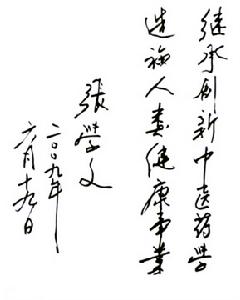 继承创新中医药学
造福人类健康事业
張学文
二〇〇九年
六月十九日